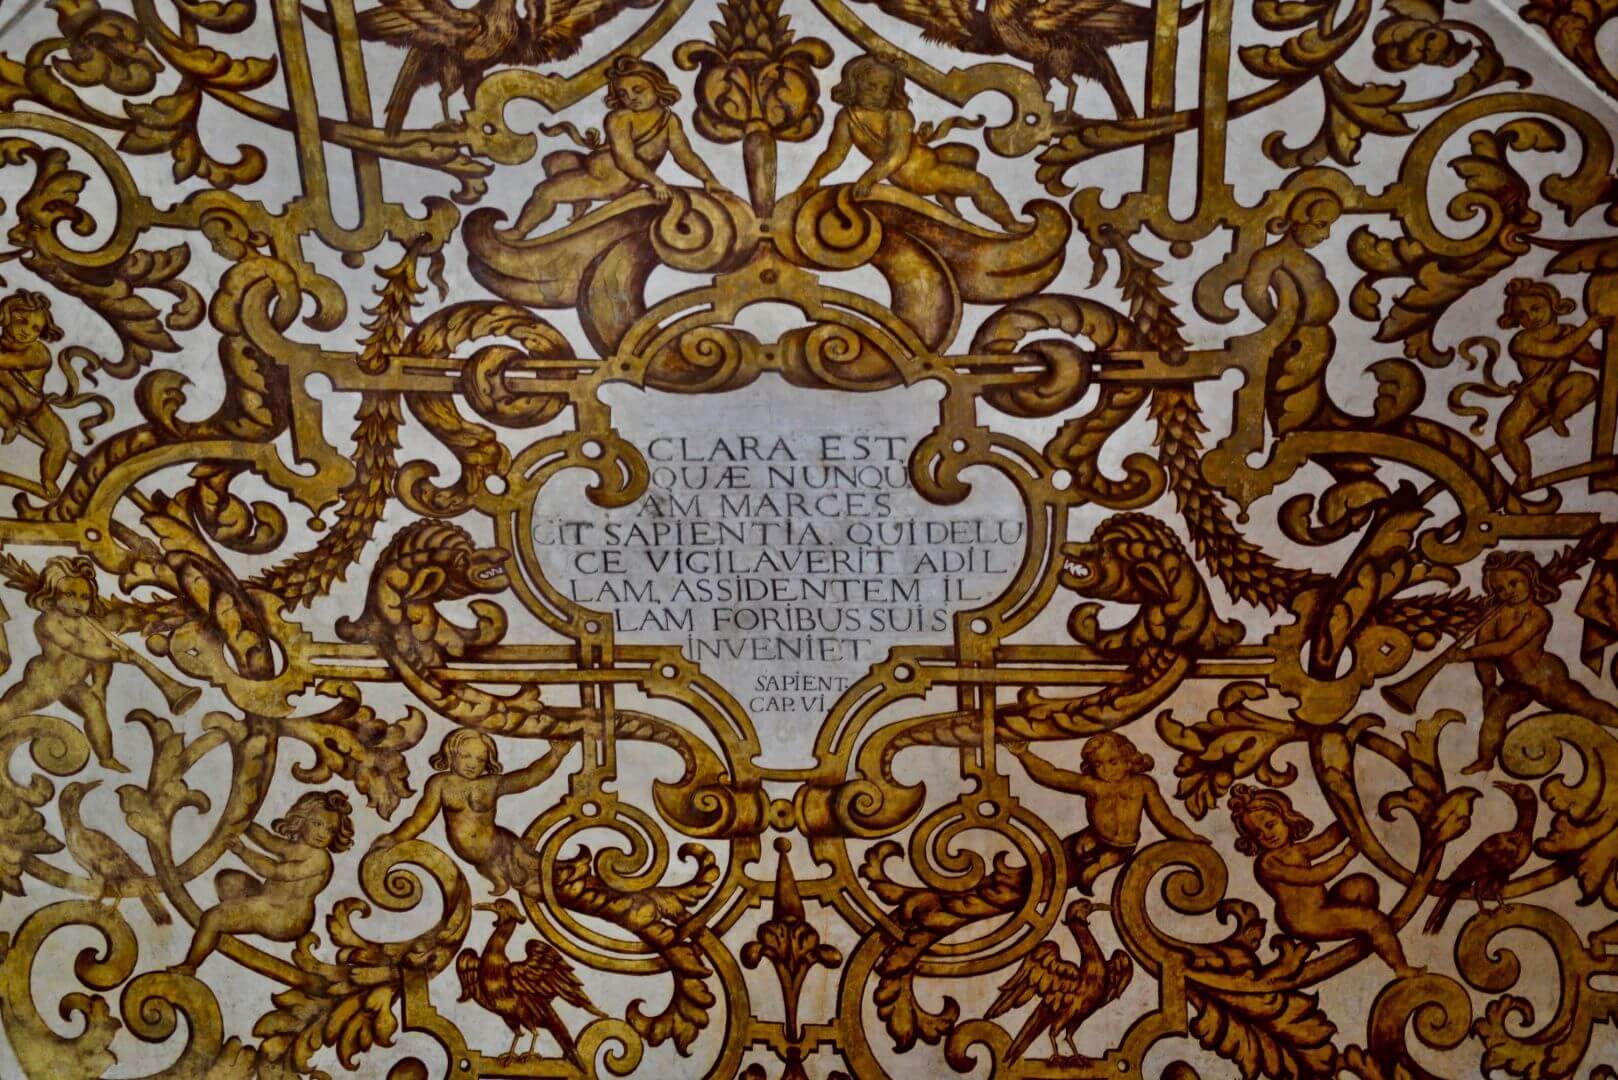 CLARA EST
QUÆ NUNQU
AM MARCES
CIT SAPIENTIA QUI DELU
CE VIGILAVERIT ADIL
LAM, ASSIDENTEM IL
LAM FORIBUS SUIS
INVENIET
SAPIENT.
CAP. VI.